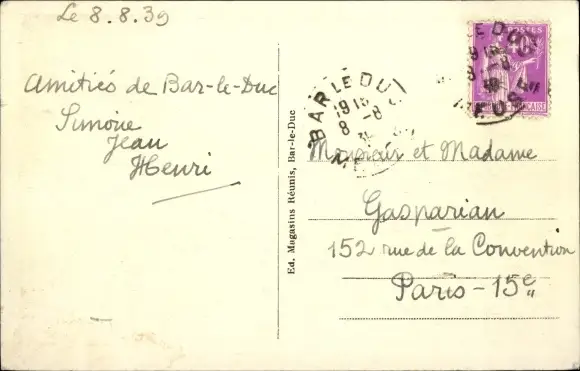 Le 8.8.39
Amitiés de Bar-le-Duc
Simone
Jean
Henri
Ed. Magasins Réunis, Bar-le-Duc
BAR LE DU
1915
8 -8
POSTES
Monsieur et Madame
Gasparian
152 rue de la Convention
Paris - 15e